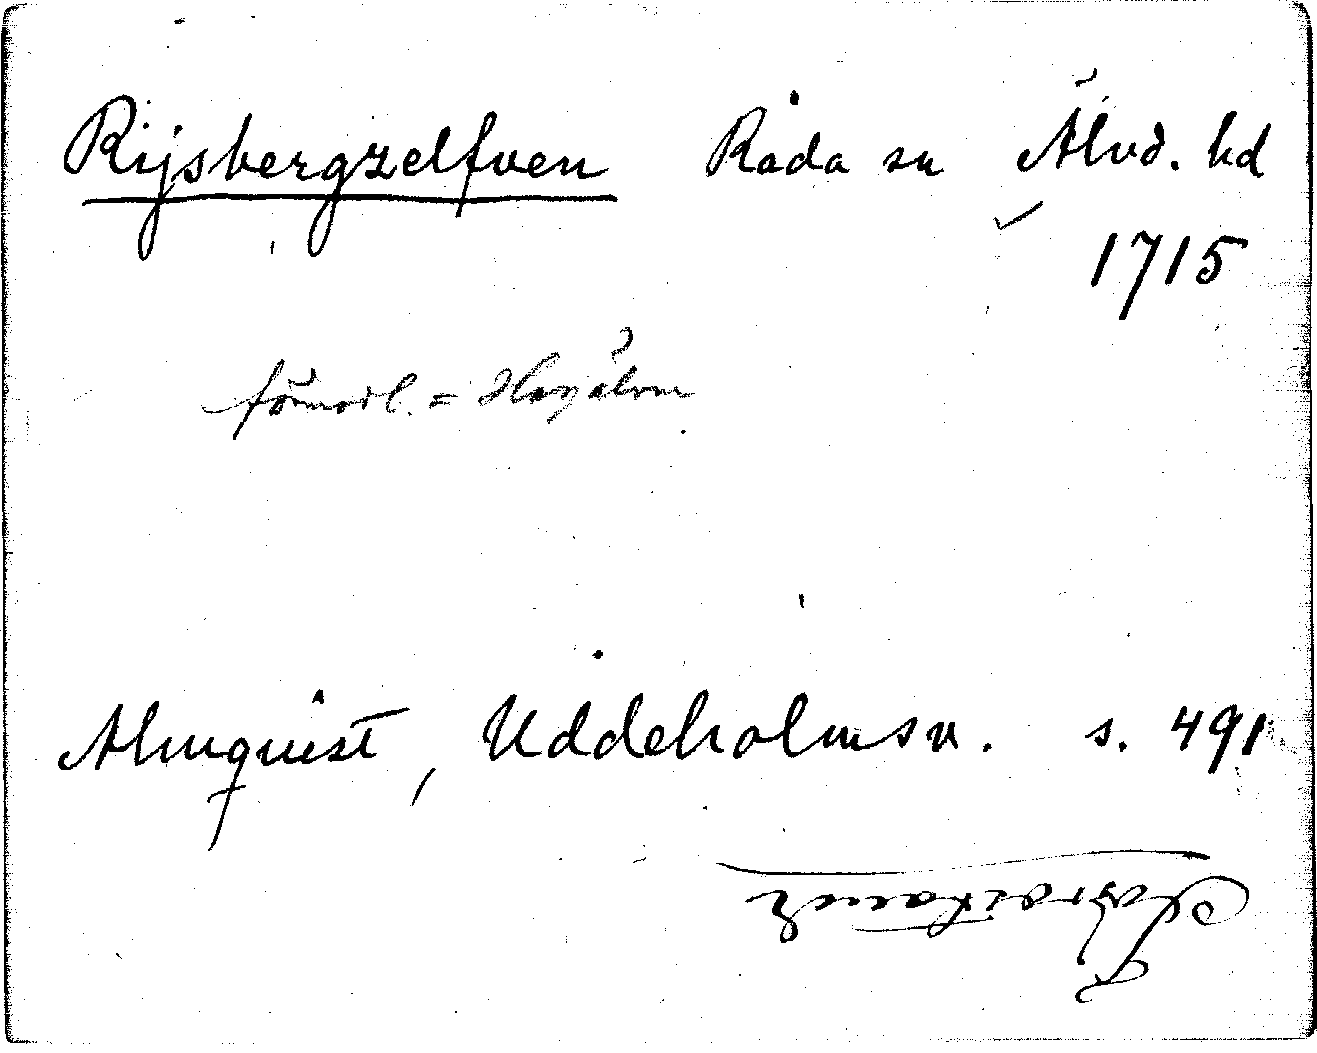 Rijsbergzelfven Råda sn Älvd. hd
1715
förmodl. = Høgälven
Almquist, Uddeholmsv. s. 491